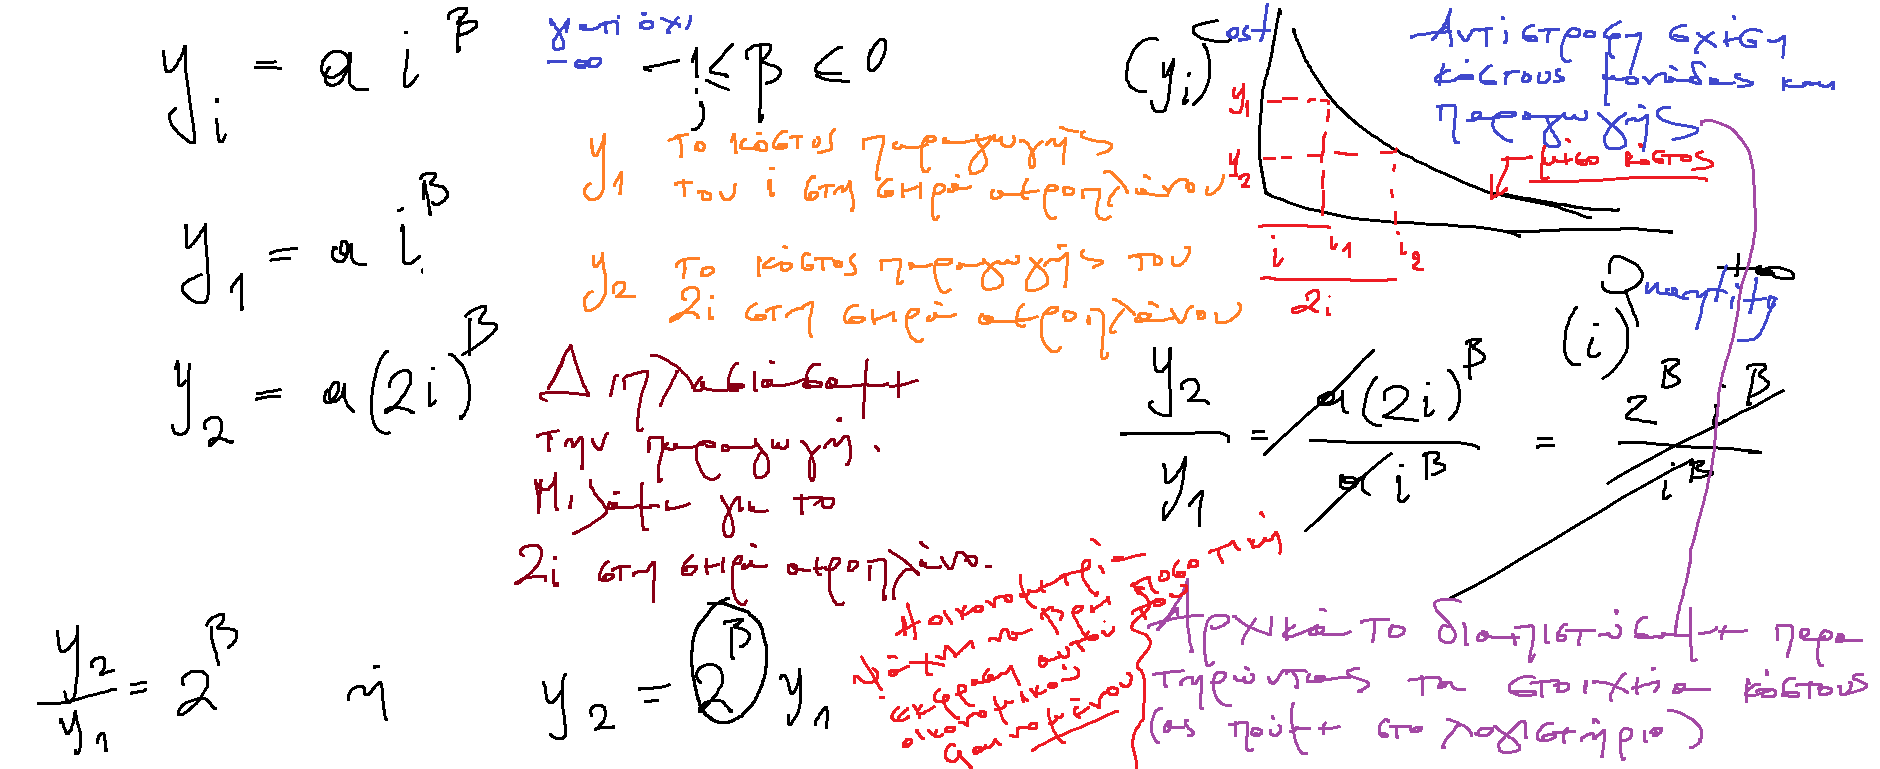 y_i = a i^β
γιατί όχι
-∞
-1 ≤ β ≤ 0
y_1 το κόστος παραγωγής
του i στη σειρά αεροπλάνου
y_1 = a i^β
y_2 το κόστος παραγωγής του
2i στη σειρά αεροπλάνου
y_2 = a(2i)^β
Διπλασιάσαμε
την παραγωγή.
Μιλάμε για το
2i στη σειρά αεροπλάνο.
Cost
(y_i)
y_1
y_2
i i_1 i_2
2i
Αντίστροφη σχέση
κόστους μονάδας και
παραγωγής
μέσο κόστος
+∞
Quantity
(i)
y_2/y_1 = a(2i)^β / a i^β = 2^β i^β / i^β
y_2/y_1 = 2^β ή y_2 = 2^β y_1
Η οικονομετρία
ψάχνει να βρει ποσοτική
έκφραση αυτού του
οικονομικού
φαινομένου
Αρχικά το διαπιστώσαμε παρα
τηρώντας τα στοιχεία κόστους
(ας πούμε στο λογιστήριο)